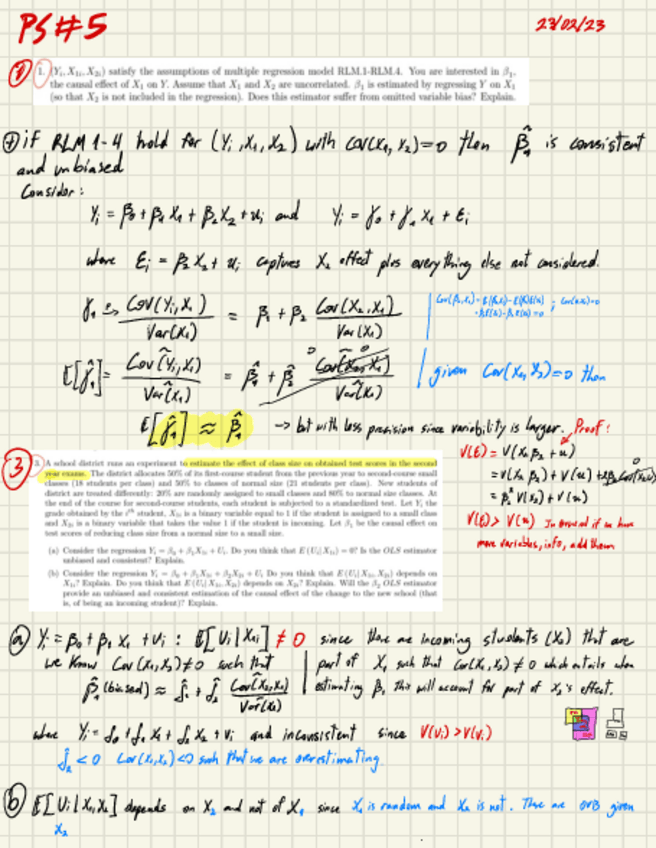 PS#5
23/02/23
1. (Yi, X1i, X2i) satisfy the assumptions of multiple regression model RLM.1-RLM.4. You are interested in β1,
the causal effect of X1 on Y. Assume that X1 and X2 are uncorrelated. β1 is estimated by regressing Y on X1
(so that X2 is not included in the regression). Does this estimator suffer from omitted variable bias? Explain.
if RLM 1-4 hold for (Yi, X1, X2) with cov(X1, X2)=0 then β̂1 is consistent
and unbiased
Consider:
Yi = β0 + β1 X1 + β2 X2 + ui and Yi = γ0 + γ1 X1 + εi
where εi = β2 X2 + ui captures X2 effect plus everything else not considered.
γ1 = Cov(Yi, X1) / Var(X1) = β1 + β2 Cov(X2, X1) / Var(X1)
E[γ̂1] = Cov(Yi, X1) / Var(X1) = β̂1 + β̂2 Cov(X2, X1) / Var(X1) given Cov(X1, X2)=0 then
E[γ̂1] ≈ β̂1 -> but with less precision since variability is larger. Proof:
V(ε) = V(X2 β2 + u)
= V(X2 β2) + V(u) + 2β2 Cov(X2, u)
= β2² V(X2) + V(u)
V(ε) > V(u) if we have
more variables, info, add them
3
3. A school district runs an experiment to estimate the effect of class size on obtained test scores in the second
year exams. The district allocates 50% of its first-course student from the previous year to second-course small
classes (18 students per class) and 50% to classes of normal size (21 students per class). New students of
district are treated differently: 20% are randomly assigned to small classes and 80% to normal size classes. At
the end of the course for second-course students, each student is subjected to a standardized test. Let Yi the
grade obtained by the ith student, X1i is a binary variable equal to 1 if the student is assigned to a small class
and X2i is a binary variable that takes the value 1 if the student is incoming. Let β1 be the causal effect on
test scores of reducing class size from a normal size to a small size.
(a) Consider the regression Yi = β0 + β1X1i + Ui. Do you think that E(Ui|X1i) = 0? Is the OLS estimator
unbiased and consistent? Explain.
(b) Consider the regression Yi = β0 + β1X1i + β2X2i + Ui Do you think that E(Ui|X1i, X2i) depends on
X1i? Explain. Do you think that E(Ui|X1i, X2i) depends on X2i? Explain. Will the β1 OLS estimator
provide an unbiased and consistent estimation of the causal effect of the change to the new school (that
is, of being an incoming student)? Explain.
a Yi = β0 + β1 X1 + Ui : E[Ui | X1i] ≠ 0 since there are incoming students (X2) that are
we know Cov(X1, X2) ≠ 0 such that part of X1 such that Cov(X1, X2) ≠ 0 which entails when
β̂1 (biased) ≈ δ̂1 + δ̂2 Cov(X2, X1) / Var(X1) estimating β1 this will account for part of X2's effect.
where Yi = δ0 + δ1 X1 + δ2 X2 + Vi and inconsistent since V(Ui) > V(Vi)
δ̂2 < 0 Cov(X1, X2) < 0 such that we are overestimating
b E[Ui | X1, X2] depends on X2 and not of X1 since X1 is random and X2 is not. There are OVB given
X2